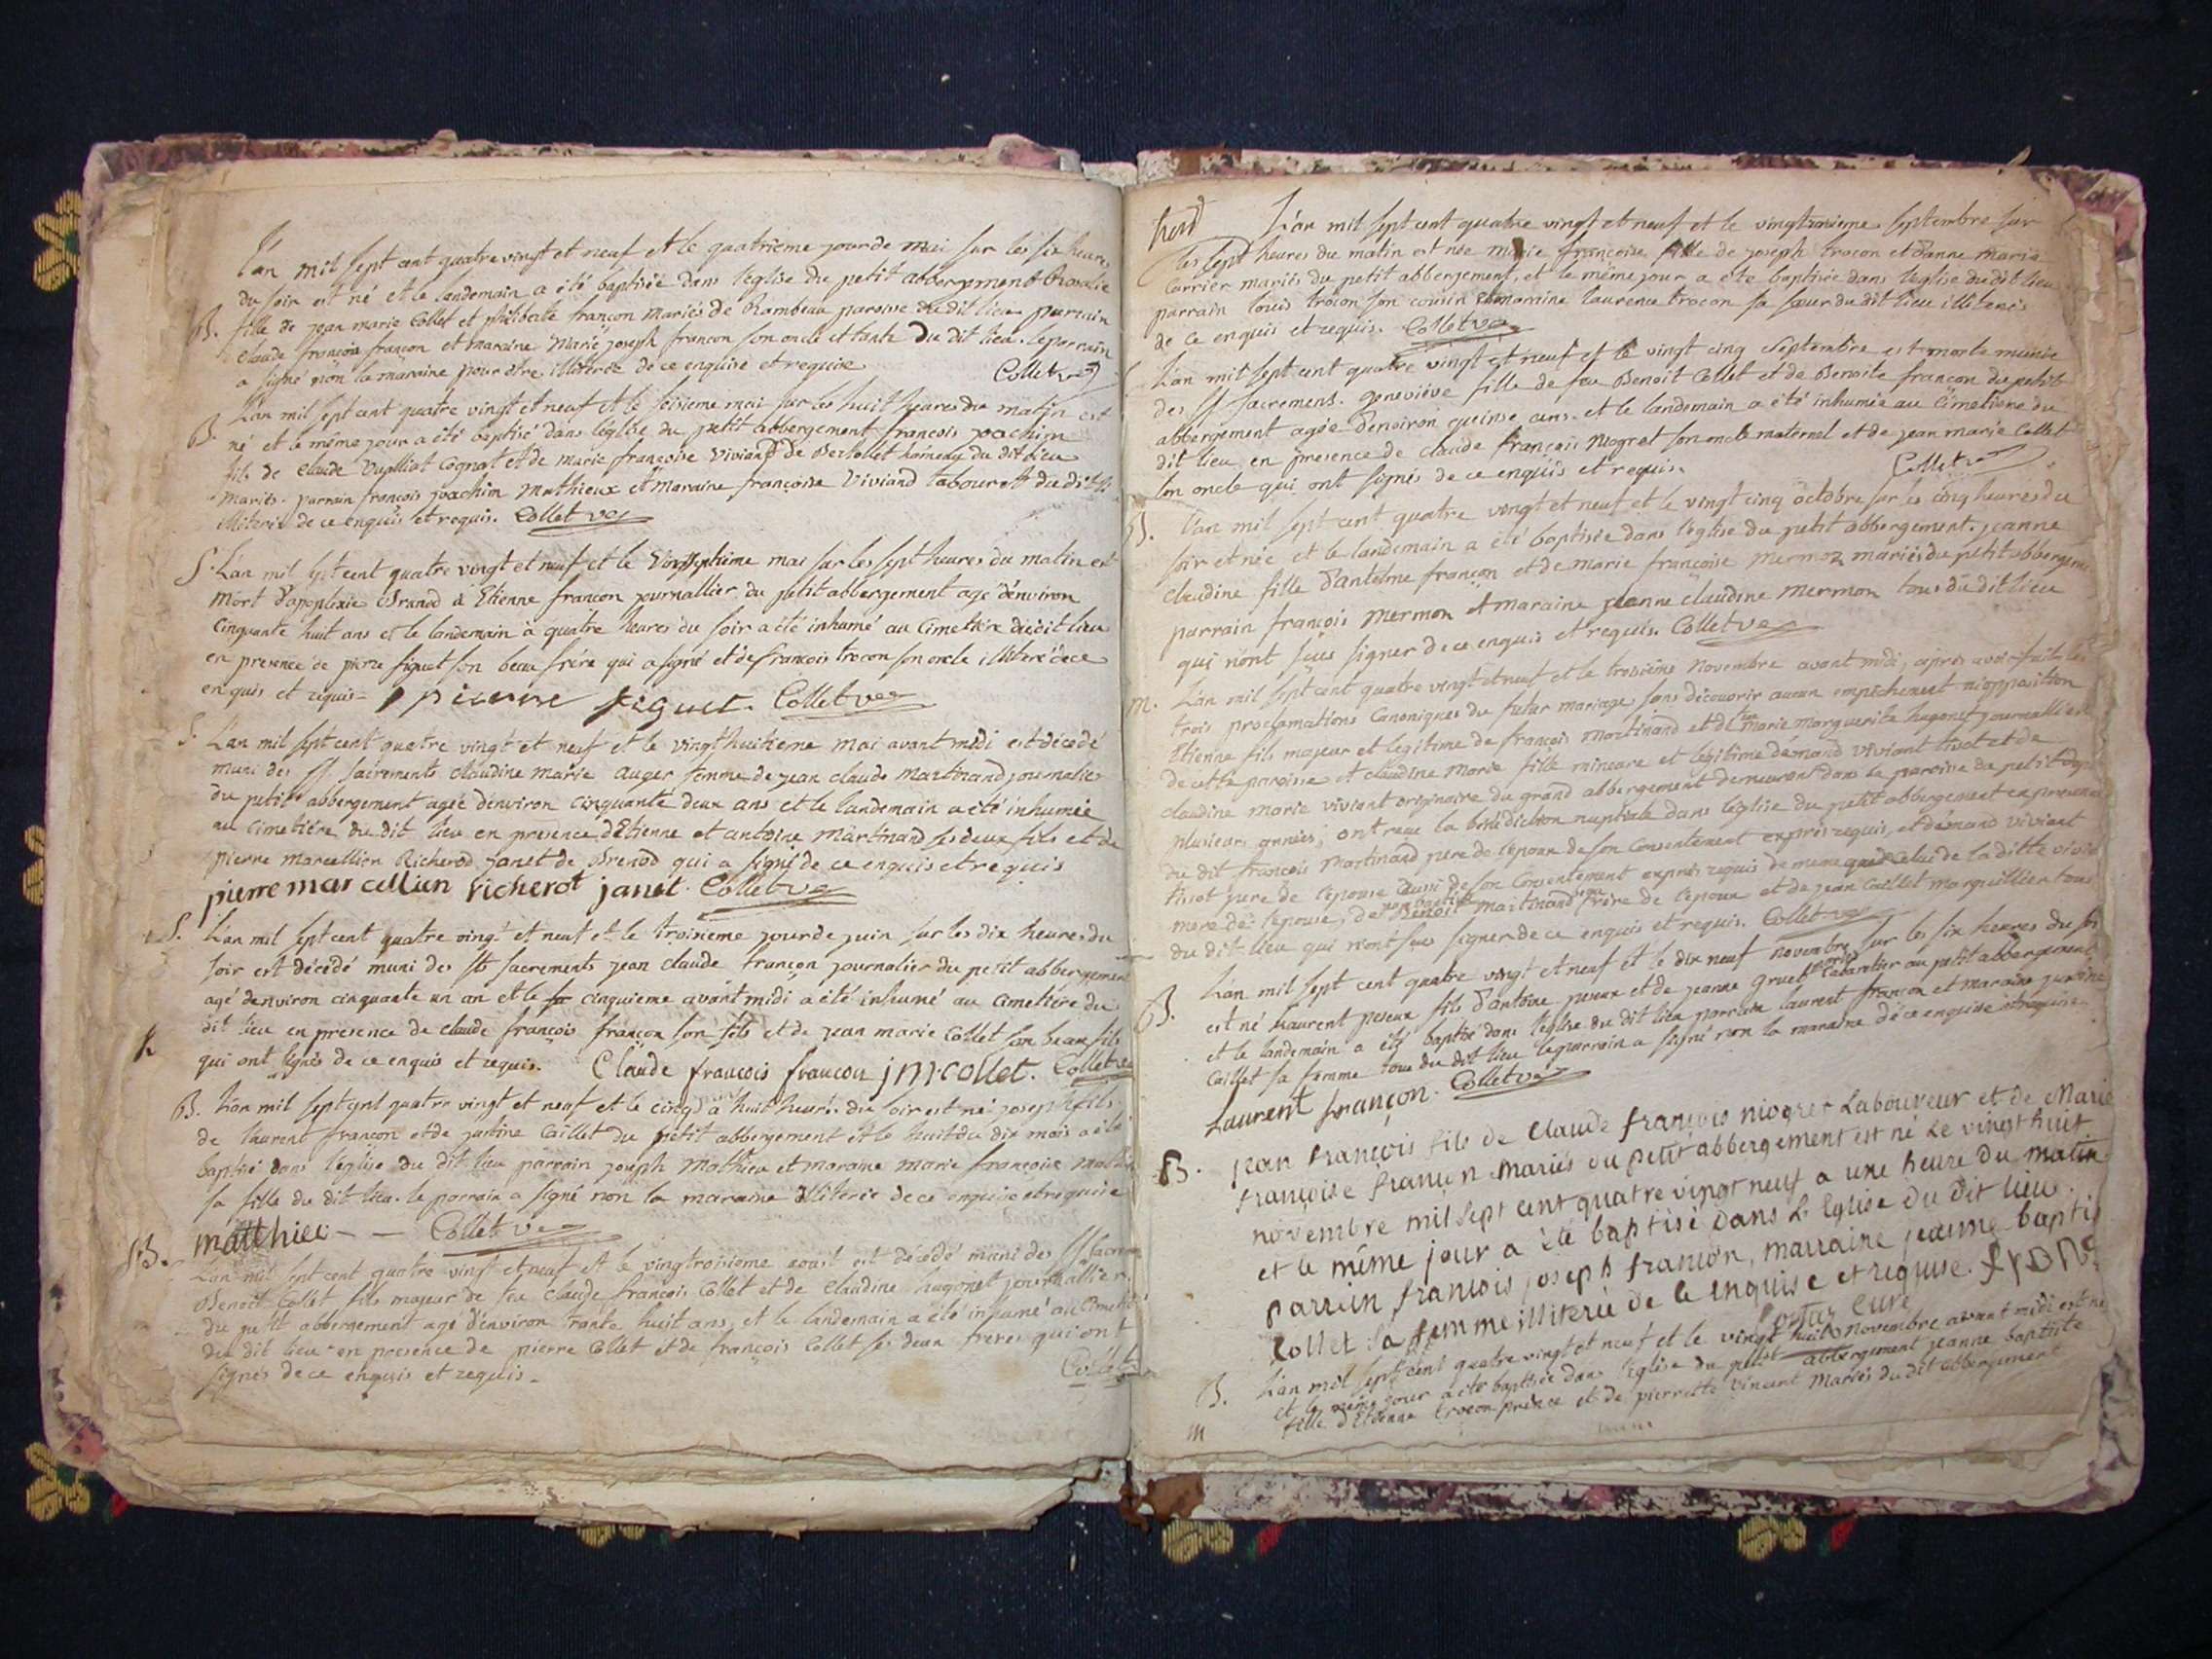 L'an mil sept cent quatre vingt et neuf et le quatrieme jour de mai sur les six heures
du soir est né et le landemain a été baptisée dans l'eglise du petit abbergement Rosalie
B. fille de jean marie Collet et philiberte françon mariés de Rambeau paroisse du dit lieu parrain
claude françois françon et maraine Marie joseph francon son oncle et tante du dit lieu. le parrain
a signé non la maraine pour être illiterée de ce enquise et requise Collet
B. L'an mil sept cent quatre vingt et neuf et le seisieme mai sur les huit heures du matin est
né et le même jour a été baptisé dans l'eglise du petit abbergement francois joachim
fils de claude Vuailliat Cognat et de marie françoise Viviand de du dit lieu
mariés. parrain françois joachim Mathieux et Maraine françoise Viviand tabouret du dit
illiterés de ce enquis et requis. Collet
S. L'an mil sept cent quatre vingt et neuf et le Vingtseptieme mai sur les sept heures du matin est
mort d'apoplexie à Etienne francon journallier du petit abbergement agé d'environ
Cinquante huit ans et le landemain à quatre heures du soir a été inhumé au Cimetiere du dit lieu
en presence de pierre figuet son beau frére qui a signé et de francois trocon son oncle illiteré de ce
enquis et requis = pierre figuet. Collet
S. L'an mil sept cent quatre vingt et neuf et le vingt huitieme mai avant midi est décédé
muni des SS. sacrements claudine marie auger femme de jean claude martinand journalier
du petit abbergement agée d'environ cinquante deux ans et le landemain a été inhumée
au cimetiére du dit lieu en presence d'Etienne et antoine martinand ses deux fils et de
pierre marcellien Richerod janet de Brenod qui a signé de ce enquis et requis
pierre marcellien richerot janet. Collet
S. L'an mil sept cent quatre vingt et neuf et le troisieme jour de juin sur les dix heures du
soir est décédé muni des Sts sacrements jean claude françon journalier du petit abbergement
agé d'environ cinquante un an et le cinquieme avant midi a été inhumé au cimetiére du
dit lieu en presence de claude françois françon son fils et de jean marie Collet son beau fils
qui ont signés de ce enquis et requis. Claude francois francon j m collet. Collet
B. L'an mil sept cent quatre vingt et neuf et le cinq juin à huit heures du soir est né joseph fils
de laurent francon et de justine Caillet du petit abbergement et le huit du dit mois a été
baptisé dans l'eglise du dit lieu parrain joseph mathieu et maraine marie françoise
sa fille du dit lieu. le parrain a signé non la maraine illiterée de ce enquise et requise
matthieu - - Collet
L'an mil sept cent quatre vingt et neuf et le vingtroisieme aoust est décédé muni des SS
Benoit Collet fils majeur de feu claude françois Collet et de claudine hugonet journallier
du petit abbergement agé d'environ trante huit ans, et le landemain a été inhumé au
du dit lieu en presence de pierre Collet et de françois Collet ses deux freres qui ont
signés de ce enquis et requis - Collet
L'an mil sept cent quatre vingt et neuf et le vingtroisieme septembre sur
les sept heures du matin est née marie françoise fille de joseph trocon et d'anne marie
Carrier mariés du petit abbergement, et le même jour a été baptisée dans l'eglise du dit lieu
parrain louis trocon son cousin et marraine laurence trocon sa sœur du dit lieu illiterés
de ce enquis et requis. Collet
L'an mil sept cent quatre vingt et neuf et le vingt cinq Septembre est morte munie
des SS sacremens. geneviéve fille de feu Benoit Collet et de Benoite françon du petit
abbergement agée d'environ queinse ans. et le landemain a été inhumée au Cimetiere du
dit lieu en presence de claude françois niogret son oncle maternel et de jean marie Collet
son oncle qui ont signés de ce enquis et requis. Collet
B. L'an mil sept cent quatre vingt et neuf et le vingt cinq octobre sur les cinq heures du
soir et née et le landemain a été baptisée dans l'eglise du petit abbergement. jeanne
claudine fille d'antelme françon et de marie françoise mermoz mariés du petit abbergeme
parrain françois mermon et maraine jeanne claudine mermon tous du dit lieu
qui n'ont sçus signer de ce enquis et requis. Collet
m. L'an mil sept cent quatre vingt et neuf et le troisiéme novembre avant midi, après avoir fait les
trois proclamations Canoniques du futur mariage sans découvrir aucun empêchement ni opposition
Etienne fils majeur et legitime de françois martinand et de marie marguerite hugonet journallier
de cette paroisse et claudine marie fille mineure et légitime d'émand viviant tissot et de
claudine marie viviant originaire du grand abbergement demeurant dans la paroisse du petit depuis
plusieurs années; ont reçu la bénédiction nuptiale dans l'eglise du petit abbergement en presence
du dit françois martinand pere de l'epoux de son Consentement exprés requis, et d'émand viviant
tissot pere de l'epouse aussi de son Consentement exprés requis de meme que celui de la ditte
mere de l'epouse, de Benoit martinand frére de l'epoux et de jean Caillet marguillier tous
du dit lieu qui n'ont sçus signer de ce enquis et requis. Collet
B. L'an mil sept cent quatre vingt et neuf et le dix neuf novembre sur les six heures du
est né Laurent peseux fils d'antoine peseux et de jeanne gruel mariés Cabaretier au petit abbergement
et le landemain a été baptisé dans l'eglise du dit lieu parrain laurent françon et maraine justine
Caillet sa femme tous du dit lieu le parrain a signé non la maraine de ce enquise et requise.
Laurent françon. Collet
B. jean francois fils de claude francois niogret Laboureur et de Marie
francoise francon mariés du petit abbergement est né Le vingt huit
novembre mil sept cent quatre vingt neuf a une heure du matin
et le même jour a été baptisé dans L'Eglise du dit lieu.
parrain francois joseph francon, marraine jeanne baptis
Collet sa femme illiterée de ce enquise et requise.
curé
B. L'an mil sept cent quatre vingt et neuf et le vingt huit novembre avant midi est né
et le même jour a été baptisée dans l'eglise du petit abbergement jeanne baptiste
fille d'Etienne trocon prince et de pierrette vincent mariés du dit abbergement